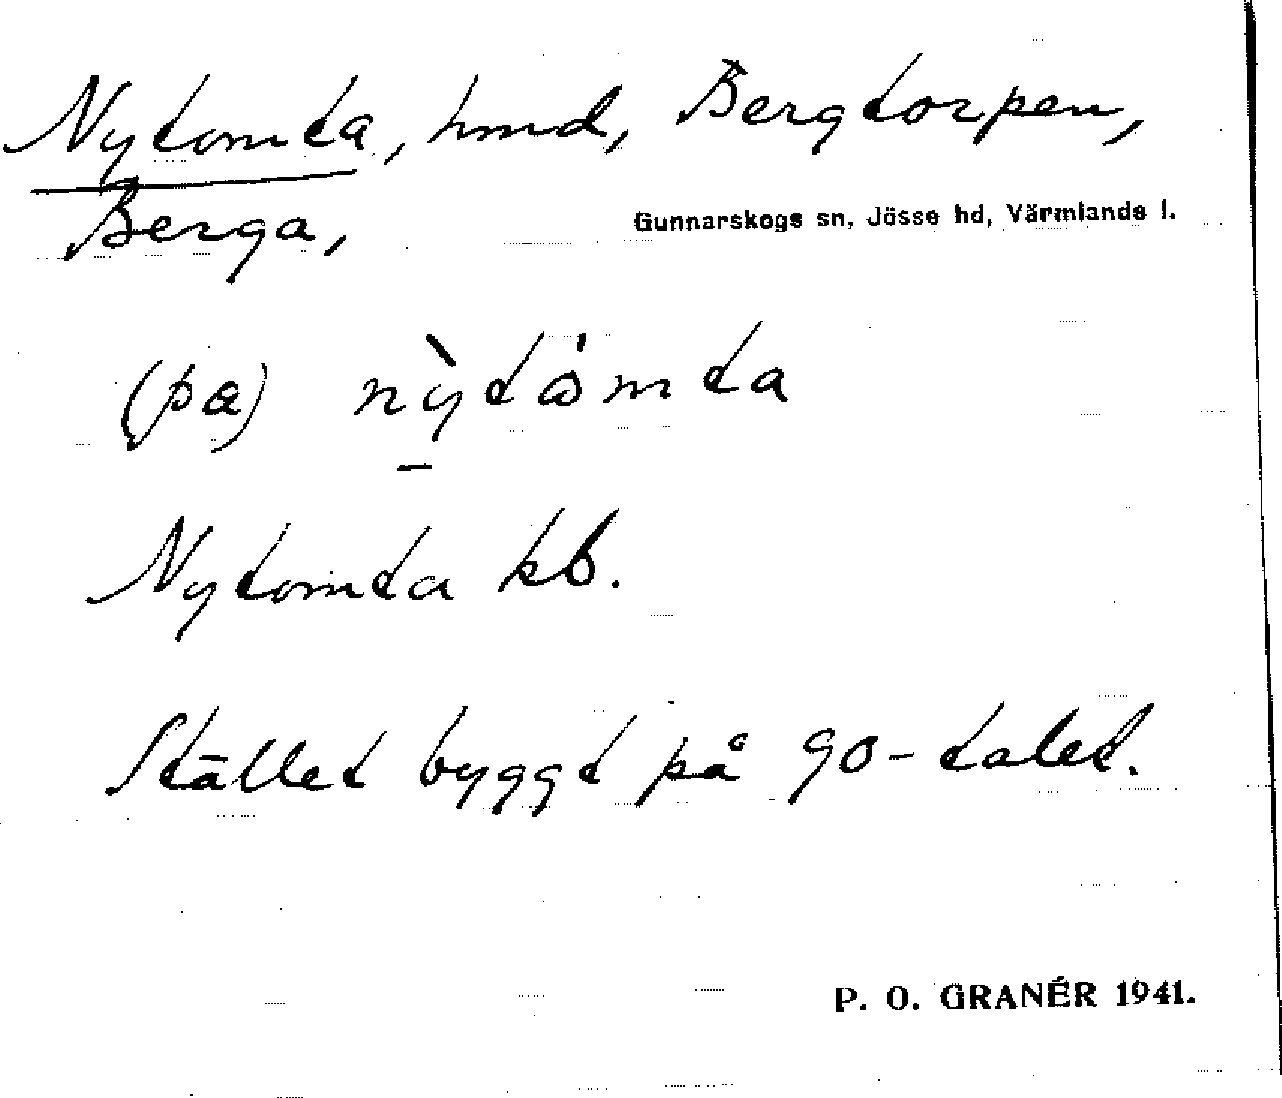 Nytomta, hmd, Bergtorpen,
Berga,
Gunnarskogs sn, Jösse hd, Värmlands l.
(pa) nỳtåmta
Nytomta kb.
Stället byggt på 90-talet.
P. O. GRANÉR 1941.